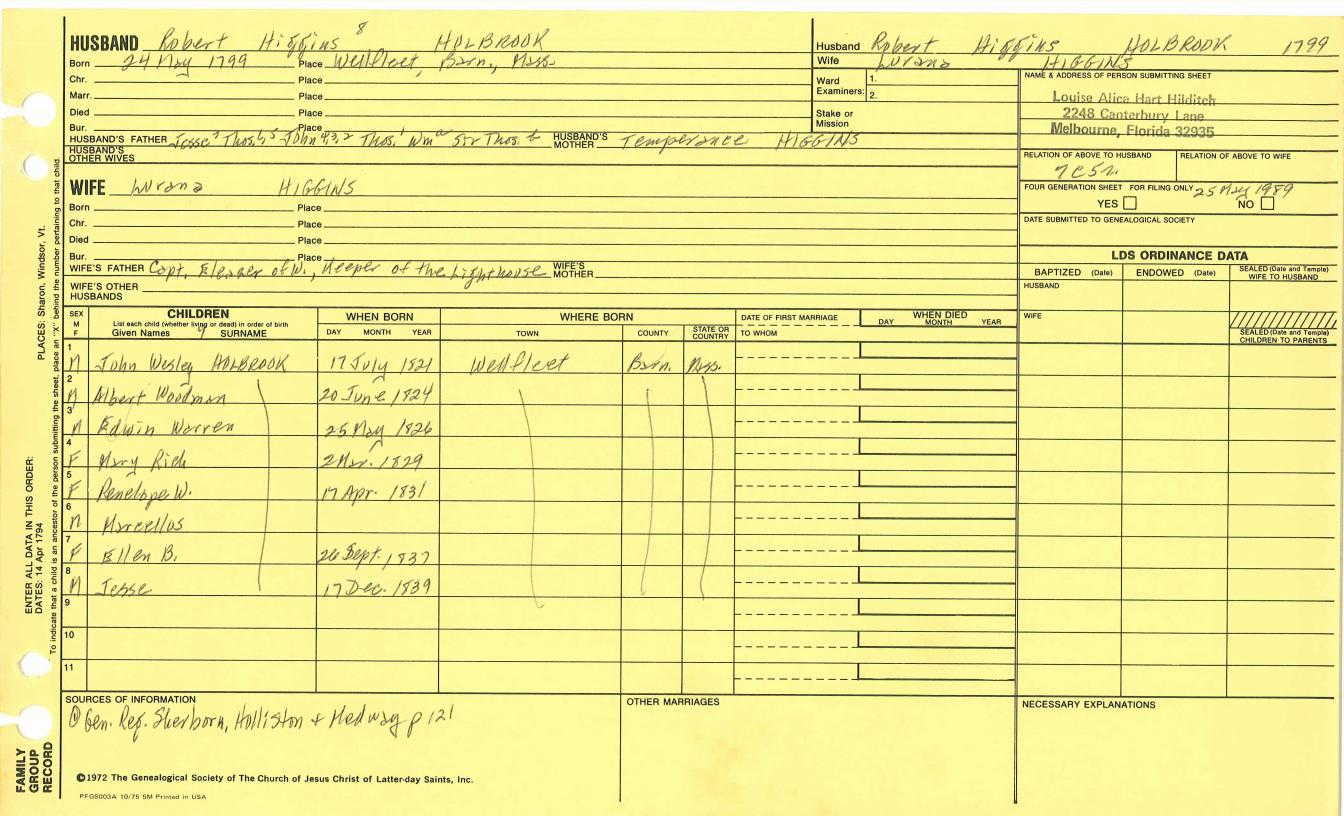 HUSBAND Robert Higgins 8 HOLBROOK
Born 24 May 1799 Place Wellfleet, Barn., Mass.
Chr. Place
Marr. Place
Died Place
Bur. Place
HUSBAND'S FATHER Jesse 7 Thos. 6, 5 John 4,3,2 Thos. 1 Wm a Sir Thos. HUSBAND'S MOTHER Temperance HIGGINS
HUSBAND'S OTHER WIVES
WIFE Lurana HIGGINS
Born Place
Chr. Place
Died Place
Bur. Place
WIFE'S FATHER Capt. Eleazer of W., Keeper of the Lighthouse WIFE'S MOTHER
WIFE'S OTHER HUSBANDS
Husband Robert Higgins HOLBROOK 1799
Wife Lurana HIGGINS
Ward Examiners: 1.
2.
Stake or Mission
NAME & ADDRESS OF PERSON SUBMITTING SHEET
Louise Alice Hart Hilditch
2248 Canterbury Lane
Melbourne, Florida 32935
RELATION OF ABOVE TO HUSBAND RELATION OF ABOVE TO WIFE
FOUR GENERATION SHEET FOR FILING ONLY 25 May 1989
YES NO
DATE SUBMITTED TO GENEALOGICAL SOCIETY
LDS ORDINANCE DATA
BAPTIZED (Date) ENDOWED (Date) SEALED (Date and Temple) WIFE TO HUSBAND
HUSBAND
WIFE
SEALED (Date and Temple) CHILDREN TO PARENTS
SEX M F
CHILDREN
List each child (whether living or dead) in order of birth
Given Names 9 SURNAME
WHEN BORN
DAY MONTH YEAR
WHERE BORN
TOWN COUNTY STATE OR COUNTRY
DATE OF FIRST MARRIAGE
TO WHOM
WHEN DIED
DAY MONTH YEAR
1 M John Wesley HOLBROOK 17 July 1821 Wellfleet Barn. Mass.
2 M Albert Woodman 20 June 1824
3 M Edwin Warren 25 May 1826
4 F Mary Rich 2 Mar. 1829
5 F Penelope W. 17 Apr. 1831
6 M Marcellos
7 F Ellen B. 26 Sept. 1837
8 M Jesse 17 Dec. 1839
9
10
11
SOURCES OF INFORMATION
① Gen. Reg. Sherborn, Holliston + Medway p 121
OTHER MARRIAGES
NECESSARY EXPLANATIONS
©1972 The Genealogical Society of The Church of Jesus Christ of Latter-day Saints, Inc.
PFGS003A 10/75 5M Printed in USA
FAMILY GROUP RECORD
ENTER ALL DATA IN THIS ORDER:
DATES: 14 Apr 1794
PLACES: Sharon, Windsor, Vt.
To indicate that a child is an ancestor of the person submitting the sheet, place an "X" behind the number pertaining to that child.